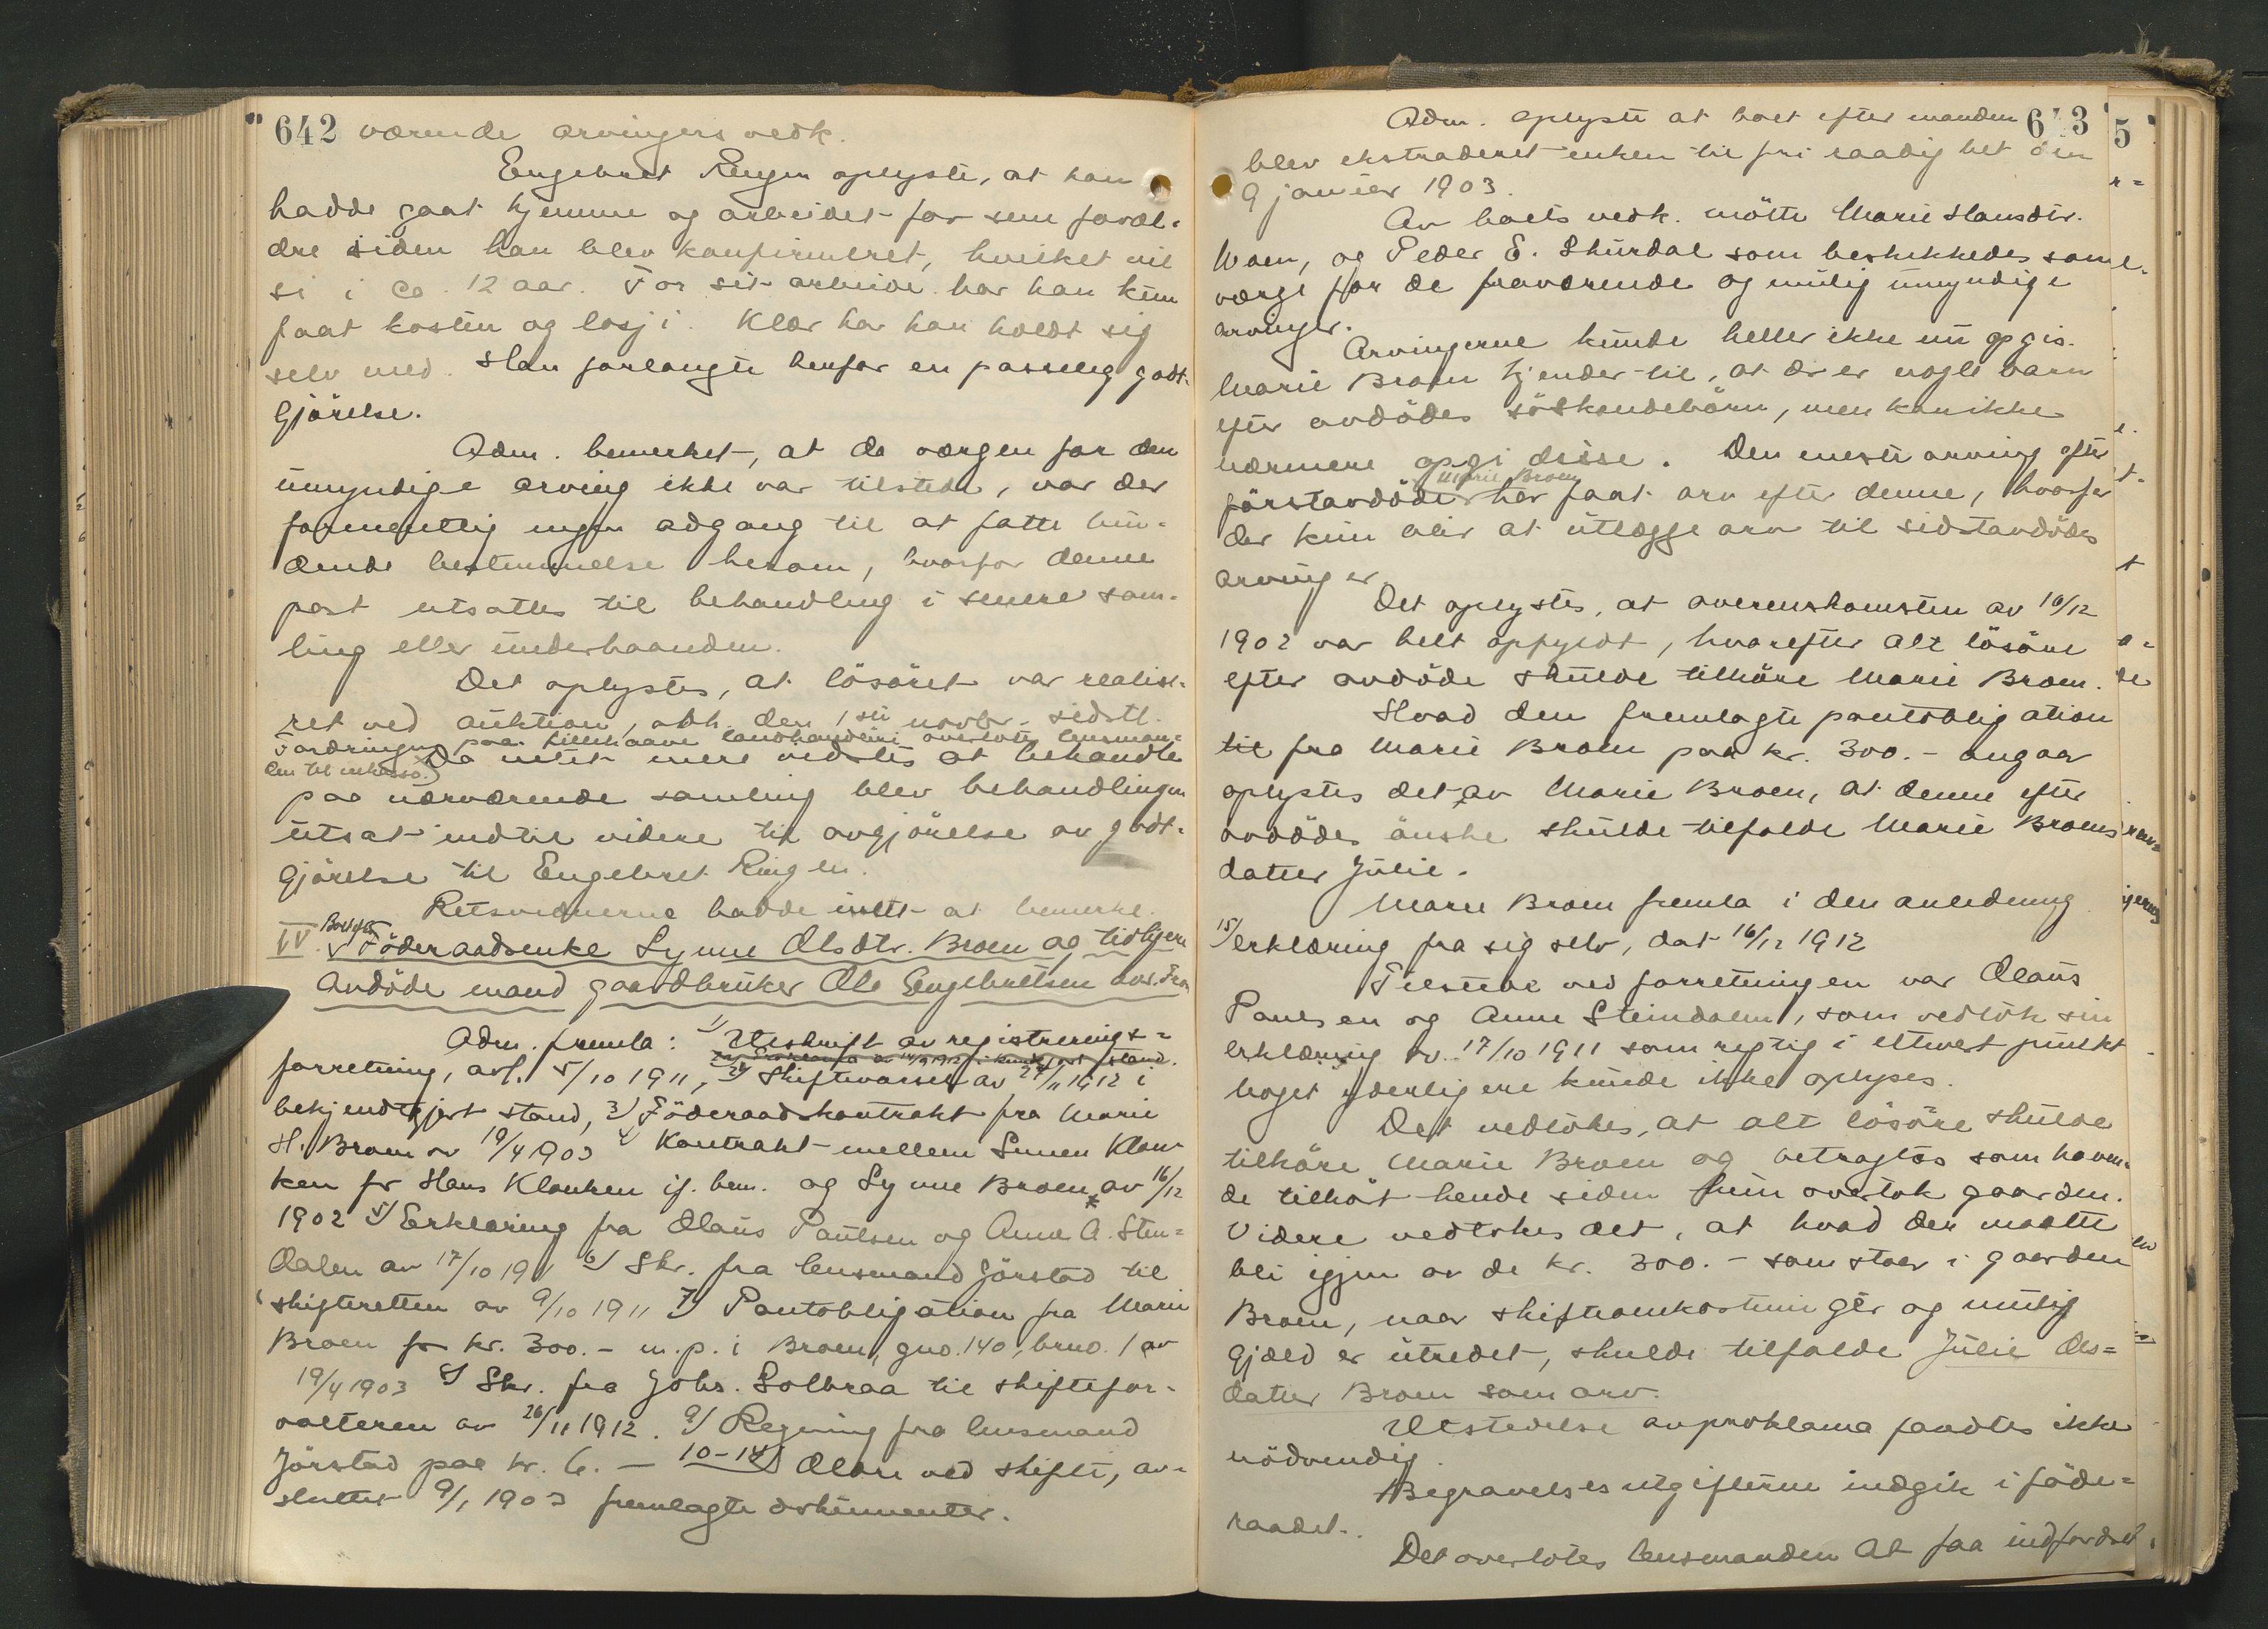 642 værende arvingers vedk.
Engebret Ringen oplyste, at han
hadde gaat hjemme og arbeidet for sine foræl-
dre siden han blev konfirmeret, hvilket vil
si i ca. 12 aar. For sit arbeide har han kun
faat kosten og losji. Klær har han holdt sig
selv med. Han forlangte herfor en passelig godt-
gjörelse.
Adm. bemerket, at da værgen for den
umyndige arving ikke var tilstede, var der
formentlig ingen adgang til at fatte bin-
dende bestemmelse herom, hvorfor denne
post utsattes til behandling i senere sam-
ling eller underhaanden.
Det oplystes, at lösöret var realise-
ret ved auktion, avh. den 1ste novbr. sidstl.
Fordringen paa Lillehaave landhandleri overlotes lensman-
den til inkasso. Da intet mere vedstes at behandle
paa nærværende samling blev behandlingen
utsat indtil videre til avgjörelse av godt-
gjörelse til Engebret Ringen.
Retsvidnerne hadde intet at bemerke.
IV. Boet efter Föderaadsenke Synne Olsdtr. Broen og tidligere
avdöde mand gaardbruker Ole Engebretsen
Adm. fremla: 1) Utskrift av registrerings-
forretning, avh. 5/10 1911, 2) Skiftevarsel av 27/11 1912 i
bekjendtgjort stand, 3) Föderaadskontrakt fra Marie
H. Broen av 19/4 1903 4) Kontrakt mellem Simen Klan-
ken for Hans Klanken if. bem. og Synne Broen * av 16/12
1902 5) Erklæring fra Olaus Paulsen og Anne A. Sten-
dalen av 17/10 1911 6) Skr. fra lensmand Jörstad til
skifteretten av 9/10 1911 7) Pantobligation fra Marie
Broen for kr. 300.- m.p. i Broen, gno. 140, brno. 1 av
19/4 1903 8) Skr. fra Johs. Solbraa til skiftefor-
valteren av 26/11 1912. 9) Regning fra lensmand
Jörstad paa kr. 6. — 10-14) Oldre ved skifte, av-
sluttet 9/1 1903 fremlagte dokumenter.
Adm. oplyste at boet efter manden 643
blev ekstraderet enken til fri raadighet den
9 januar 1903.
Av boets vedk. mötte Marie Hansdtr.
Broen, og Peder E. Skurdal som beskikkedes som
værge for de fraværende og mulig umyndige
arvinger.
Arvingerne kunde heller ikke nu opgis.
Marie Broen kjender til, at der er nogle barn
efter avdödes söskendebörn, men kan ikke
nærmere opgi disse. Den eneste arving efter
förstavdöde Marie Broen har faat arv efter denne, hvorfor
der kun blir at utlægge arv til sidstavdödes
arvinger.
Det oplystes, at overenskomsten av 16/12
1902 var helt opfyldt, hvorefter alt lösöre
efter avdöde skulde tilhöre Marie Broen.
Hvad den fremlagte pantobligation
til fra Marie Broen paa kr. 300.- angaar
oplystes det av Marie Broen, at denne efter
avdödes önske skulde tilfalde Marie Broens
datter Julie.
Marie Broen fremla i den anledning
15) erklæring fra sig selv, dat 16/12 1912
Tilstede ved forretningen var Olaus
Paulsen og Anne Steindalen, som vedtok sin
erklæring av 17/10 1911 som rigtig i ethvert punkt
noget yderligere kunde ikke oplyses.
Det vedtokes, at alt lösöre skulde
tilhöre Marie Broen og betragtes som haven-
de tilhört hende siden hun overtok gaarden.
Videre vedtokes det, at hvad der maatte
bli igjen av de kr. 300.- som staar i gaarden
Broen, naar skifteomkostninger og mulig
gjæld er utredet, skulde tilfalde Julie Ols-
datter Broen som arv.
Utstedelse av proklama fandtes ikke
nödvendig.
Begravelsesutgifterne indgik i föde-
raadet.
Det overlotes lensmanden at faa indfordret